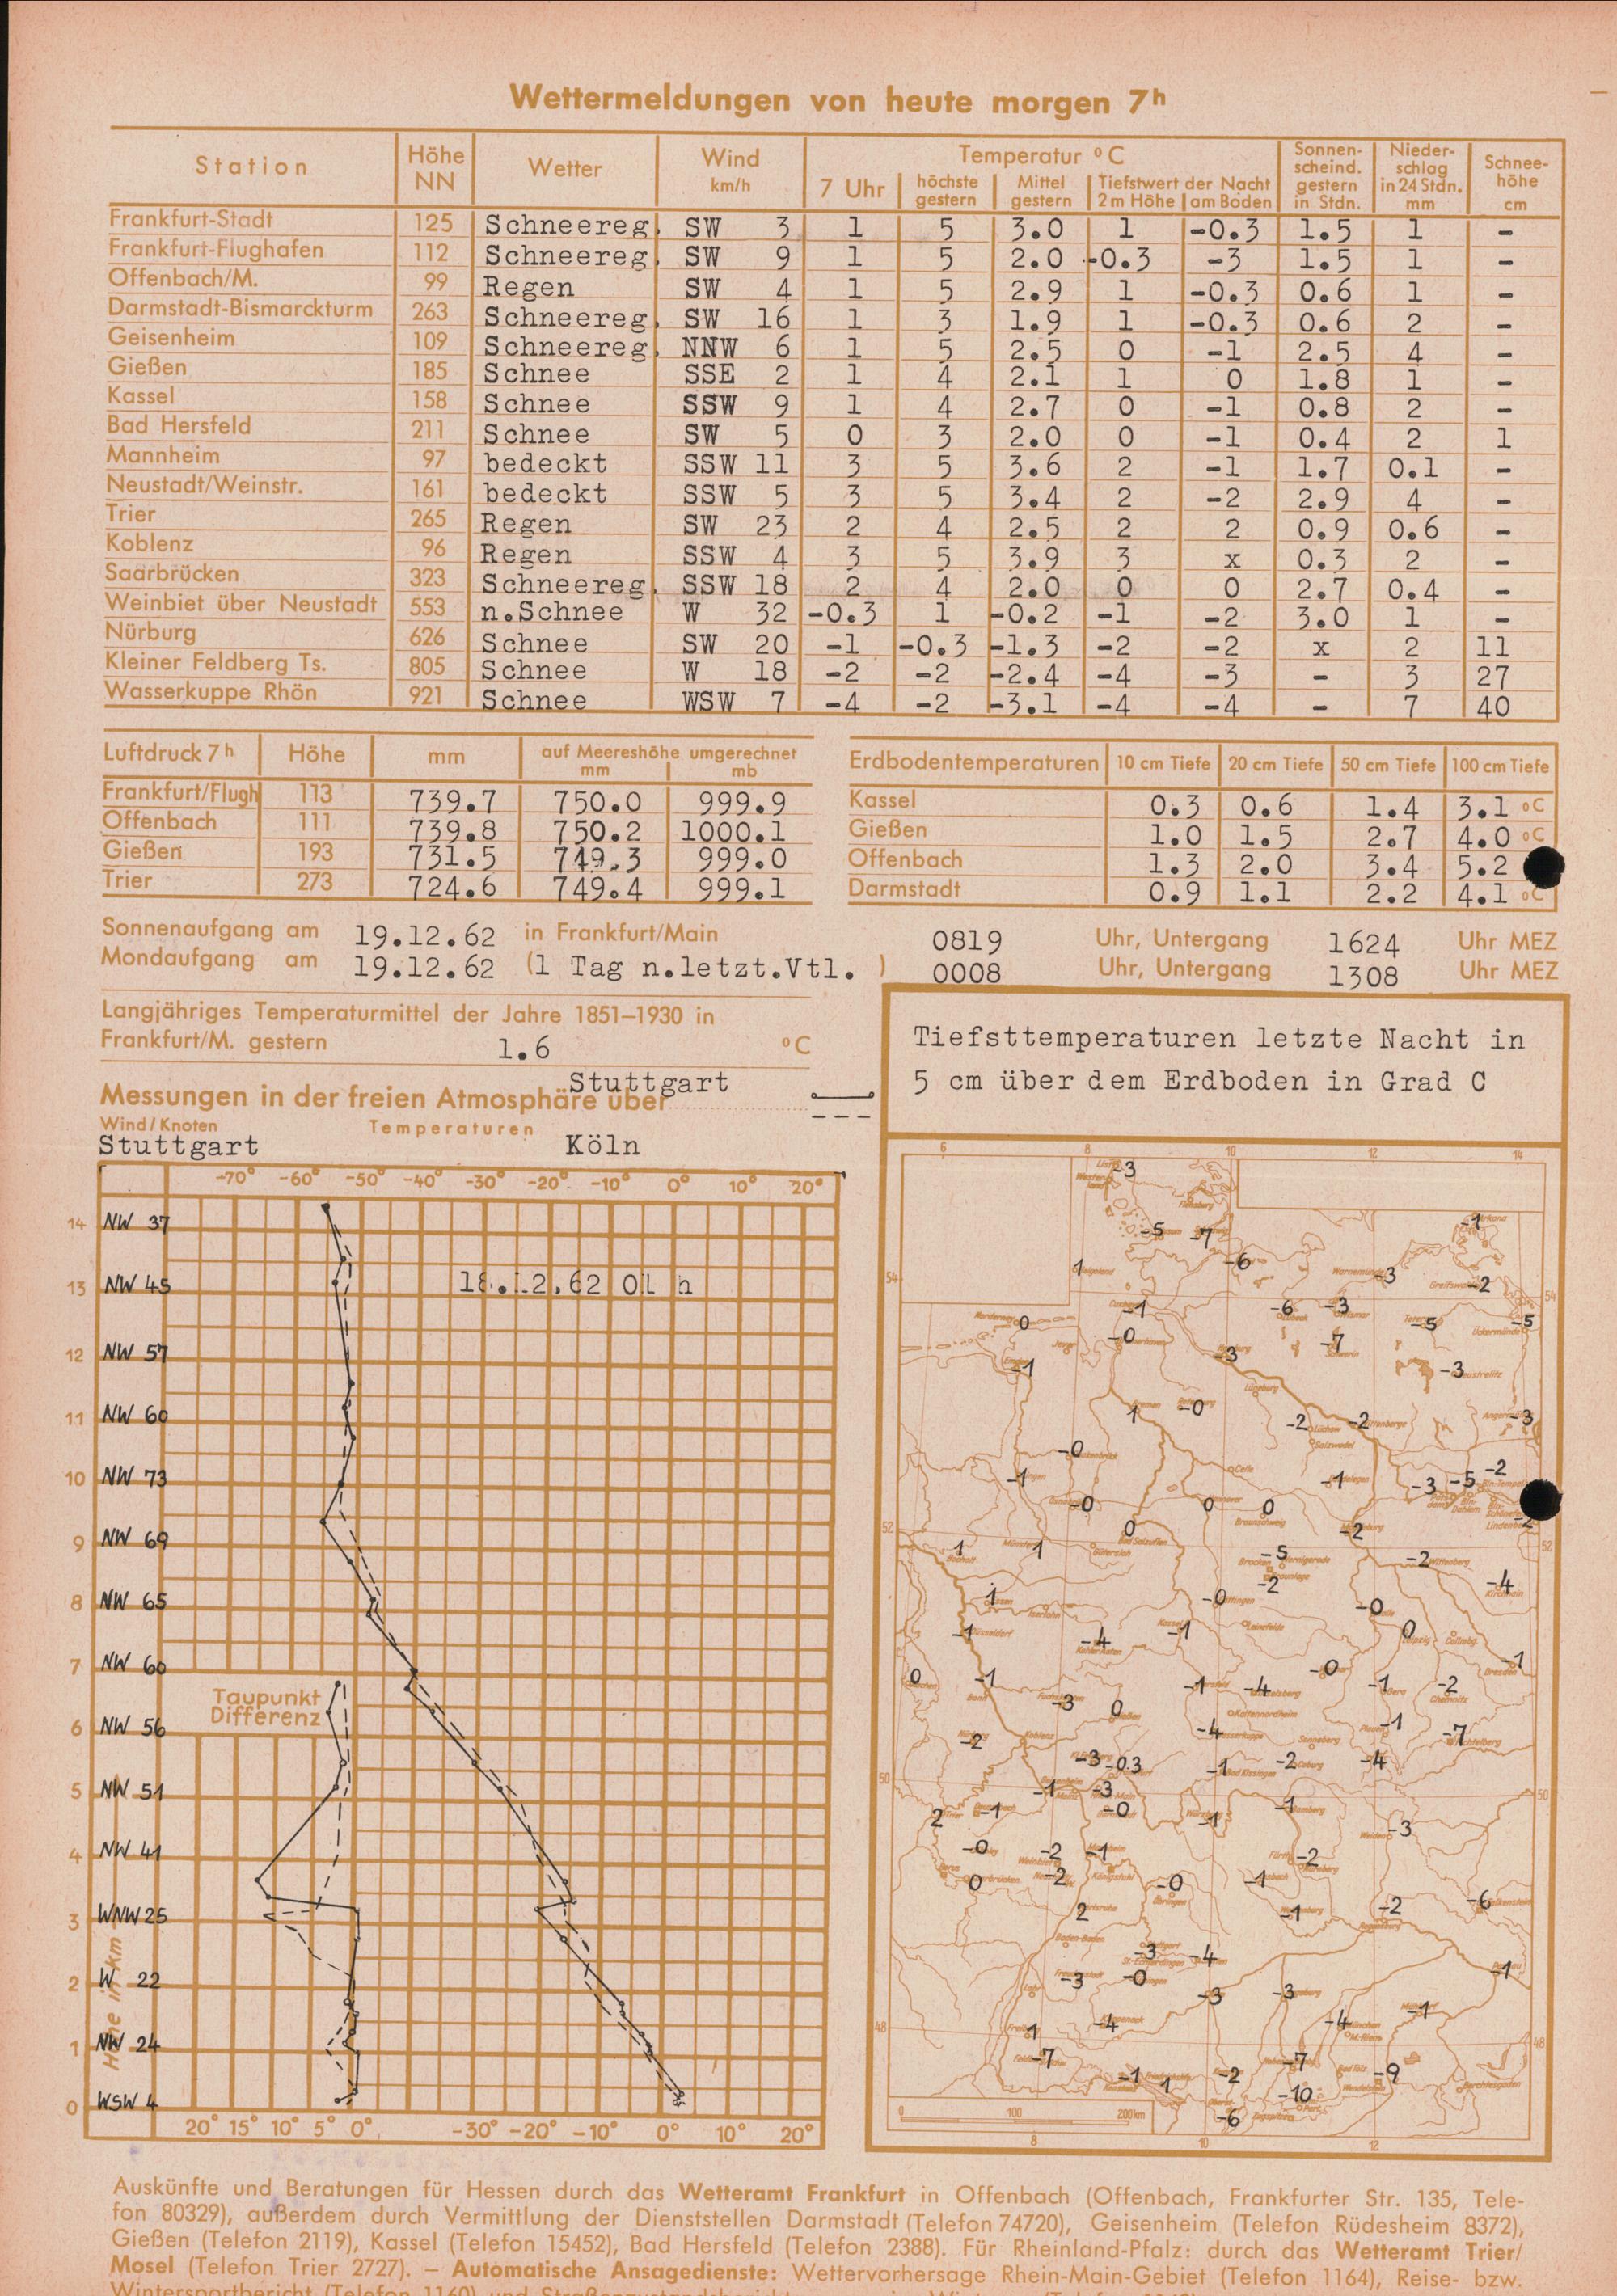 Wettermeldungen von heute morgen 7h
Station Höhe NN Wetter Wind km/h Temperatur °C Sonnen- scheind. gestern in Stdn. Nieder- schlag in 24 Stdn. mm Schnee- höhe cm
7 Uhr höchste gestern Mittel gestern Tiefstwert der Nacht 2 m Höhe am Boden
Frankfurt-Stadt 125 Schneereg. SW 3 1 5 3.0 1 -0.3 1.5 1 -
Frankfurt-Flughafen 112 Schneereg. SW 9 1 5 2.0 -0.3 -3 1.5 1 -
Offenbach/M. 99 Regen SW 4 1 5 2.9 1 -0.3 0.6 1 -
Darmstadt-Bismarckturm 263 Schneereg. SW 16 1 3 1.9 1 -0.3 0.6 2 -
Geisenheim 109 Schneereg. NNW 6 1 5 2.5 0 -1 2.5 4 -
Gießen 185 Schnee SSE 2 1 4 2.1 1 0 1.8 1 -
Kassel 158 Schnee SSW 9 1 4 2.7 0 -1 0.8 2 -
Bad Hersfeld 211 Schnee SW 5 0 3 2.0 0 -1 0.4 2 1
Mannheim 97 bedeckt SSW 11 3 5 3.6 2 -1 1.7 0.1 -
Neustadt/Weinstr. 161 bedeckt SSW 5 3 5 3.4 2 -2 2.9 4 -
Trier 265 Regen SW 23 2 4 2.5 2 2 0.9 0.6 -
Koblenz 96 Regen SSW 4 3 5 3.9 3 x 0.3 2 -
Saarbrücken 323 Schneereg. SSW 18 2 4 2.0 0 0 2.7 0.4 -
Weinbiet über Neustadt 553 n.Schnee W 32 -0.3 1 -0.2 -1 -2 3.0 1 -
Nürburg 626 Schnee SW 20 -1 -0.3 -1.3 -2 -2 x 2 11
Kleiner Feldberg Ts. 805 Schnee W 18 -2 -2 -2.4 -4 -3 - 3 27
Wasserkuppe Rhön 921 Schnee WSW 7 -4 -2 -3.1 -4 -4 - 7 40
Luftdruck 7h Höhe mm auf Meereshöhe umgerechnet mm mb
Frankfurt/Flugh 113 739.7 750.0 999.9
Offenbach 111 739.8 750.2 1000.1
Gießen 193 731.5 749.3 999.0
Trier 273 724.6 749.4 999.1
Erdbodentemperaturen 10 cm Tiefe 20 cm Tiefe 50 cm Tiefe 100 cm Tiefe
Kassel 0.3 0.6 1.4 3.1 °C
Gießen 1.0 1.5 2.7 4.0 °C
Offenbach 1.3 2.0 3.4 5.2
Darmstadt 0.9 1.1 2.2 4.1 °C
Sonnenaufgang am 19.12.62 in Frankfurt/Main 0819 Uhr, Untergang 1624 Uhr MEZ
Mondaufgang am 19.12.62 (1 Tag n.letzt.Vtl. ) 0008 Uhr, Untergang 1308 Uhr MEZ
Langjähriges Temperaturmittel der Jahre 1851–1930 in
Frankfurt/M. gestern 1.6 °C
Messungen in der freien Atmosphäre über Stuttgart
Wind/Knoten Temperaturen
Stuttgart Köln
-70° -60° -50° -40° -30° -20° -10° 0° 10° 20°
14 NW 37
13 NW 45 18.12.62 01 h
12 NW 57
11 NW 60
10 NW 73
9 NW 69
8 NW 65
7 NW 60
Taupunkt
Differenz
6 NW 56
5 NW 51
4 NW 41
3 WNW 25
2 W 22
1 NW 24
0 WSW 4
Höhe in km
20° 15° 10° 5° 0° -30° -20° -10° 0° 10° 20°
Tiefsttemperaturen letzte Nacht in
5 cm über dem Erdboden in Grad C
6 8 10 12 14
-3
-5 -7 -1
1 -6 -3 -2
54 54
0 -1 -6 -3 -5 -5
-1 -0 -3 -7 -3
1 -0 -2 -2 -3
-0 -1 -1 -3 -5 -2
-0 0 0
52 0 -2 -2 52
1 1 -5 -2 -4
1 -2 -0 -0
-1 -4 -1 0
0 -1 -1 -4 -0 -1 -2 -1
-3 0 -4 -1 -7
-2 -3 -0.3 -1 -2 -4
50 1 -3 -0 50
2 -1 -1 -1 -3
-0 -2 -1 -2
0 -2 -0 -1 -6
2 -1 -2
-3 -4 -1
-3 -0 -3 -3
48 1 -4 -4 -1 48
-7 -1 1 -2 -7 -9
-10
-6
0 100 200 km
8 10 12
Auskünfte und Beratungen für Hessen durch das Wetteramt Frankfurt in Offenbach (Offenbach, Frankfurter Str. 135, Tele-
fon 80329), außerdem durch Vermittlung der Dienststellen Darmstadt (Telefon 74720), Geisenheim (Telefon Rüdesheim 8372),
Gießen (Telefon 2119), Kassel (Telefon 15452), Bad Hersfeld (Telefon 2388). Für Rheinland-Pfalz: durch das Wetteramt Trier/
Mosel (Telefon Trier 2727). – Automatische Ansagedienste: Wettervorhersage Rhein-Main-Gebiet (Telefon 1164), Reise- bzw.